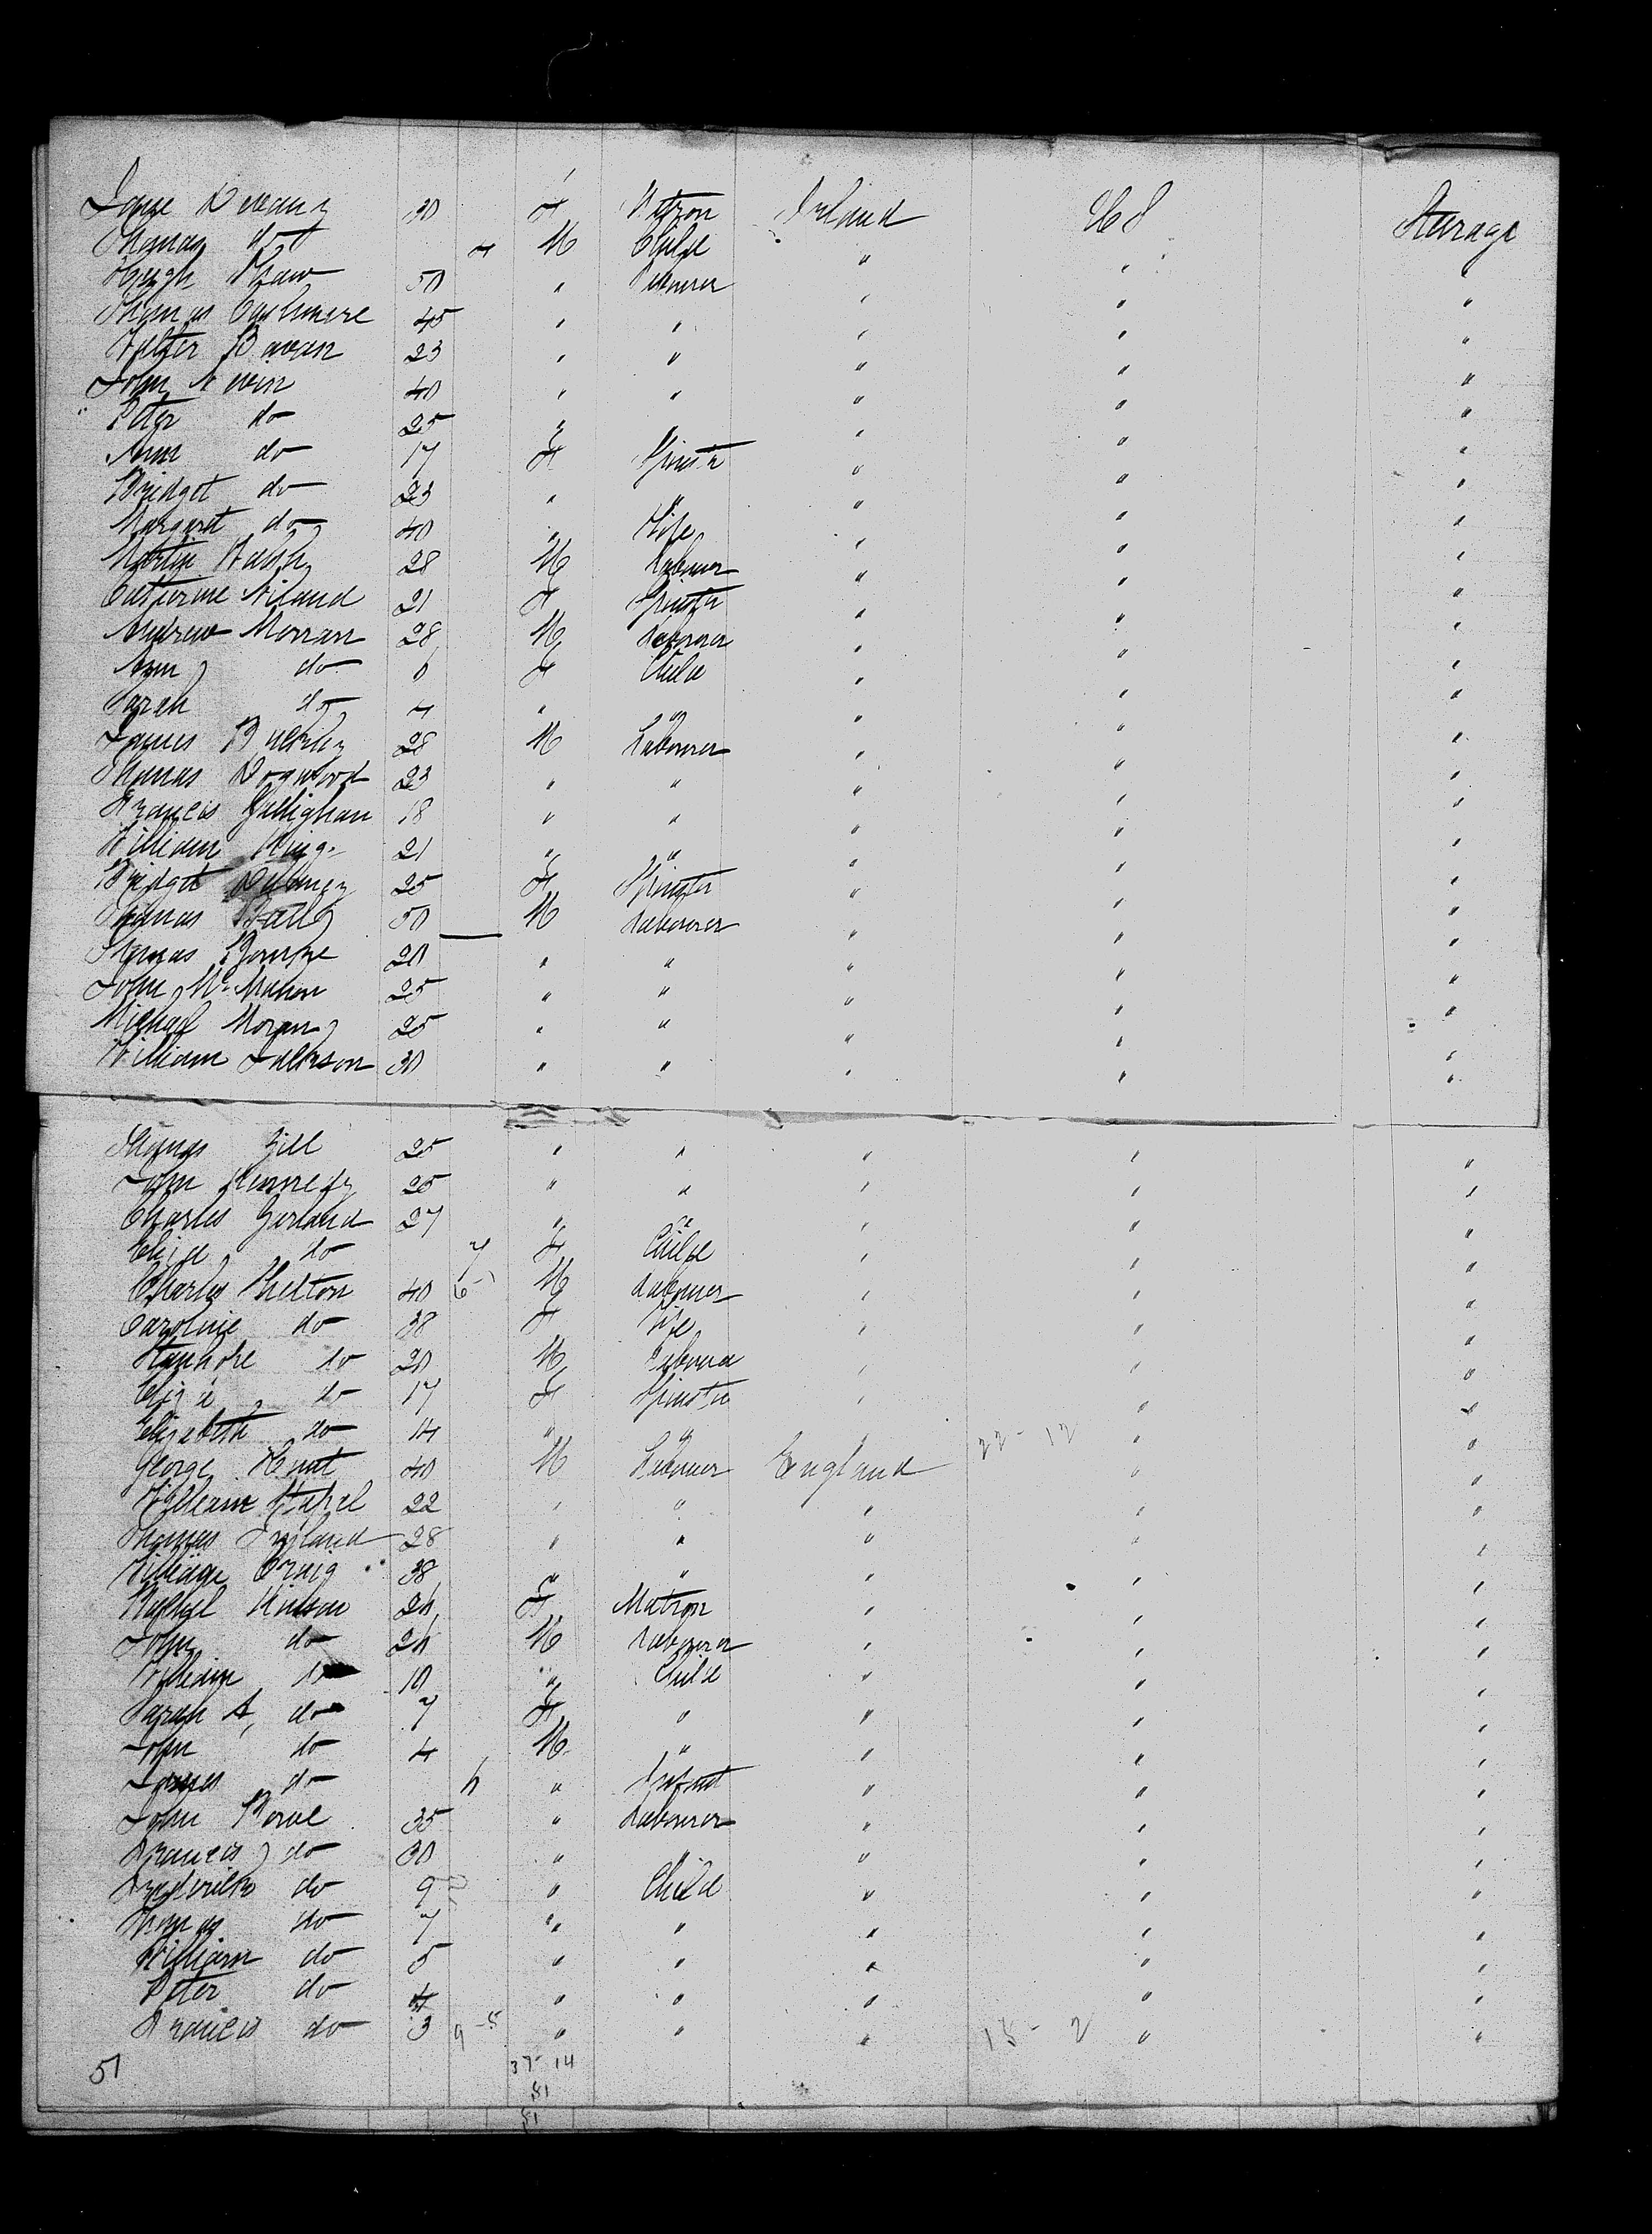 Jane Devany 30 F Matron Ireland U S Steerage
Thomas do M Child " " "
Hugh Shaw 50 " Labourer " " "
Thomas Cashmere 45 " " " " "
Walter Bavan 23 " " " " "
John Nevin 40 " " " " "
Peter do 25 " " " "
Ann do 17 F Spinster " " "
Bridget do 23 " " " " "
Margaret do 40 " Wife " " "
Martin Walsh 28 M Labourer " " "
Catherine Niland 21 F Spinster " " "
Andrew Morran 28 M Labourer " " "
Ann do 6 F Child " " "
Sarah do " " " " "
James Buckley 28 M Labourer " " "
Thomas Dogwood 23 " " " " "
Francis Gallighan 18 " " " " "
William King 21 " " " " "
Bridget 25 F Spinster " " "
Thomas Batty 50 M Labourer " " "
Thomas Bourke 20 " " " " "
John McMahon 25 " " " " "
Michael Moran 25 " " " " "
William Jackson 30 " " " " "
Thomas Gill 25 " " " " "
John Kennedy 25 " " " " "
Charles Garland 27 " " " " "
Eliza do 7 F Child " " "
Charles Shelton 40 6-1 M Labourer " " "
Caroline do 38 F Wife " " "
Stanhope do 20 M Labourer " " "
Eliza do 17 F Spinster " " "
Elizabeth do 14 " " " 22-12 " "
George Hunt 40 M Labourer England " "
William 22 " " " " "
Thomas England 28 " " " " "
William Craig 38 " " " " "
Rachel Hinson 24 F Matron " " "
John do 24 M Labourer " " "
William do 10 " Child " " "
Sarah A. do 7 F " " " "
John do 4 M " " " "
James do " Infant " " "
John Bowl 35 " Labourer " " "
Francis do 30 " " " " "
Frederick do 9 " Child " " "
Thomas do 7 " " " " "
William do 5 " " " " "
Peter do 4 " " " " "
Francis do 3 9-5 " " " 15-2 " "
51 37-14
81
81